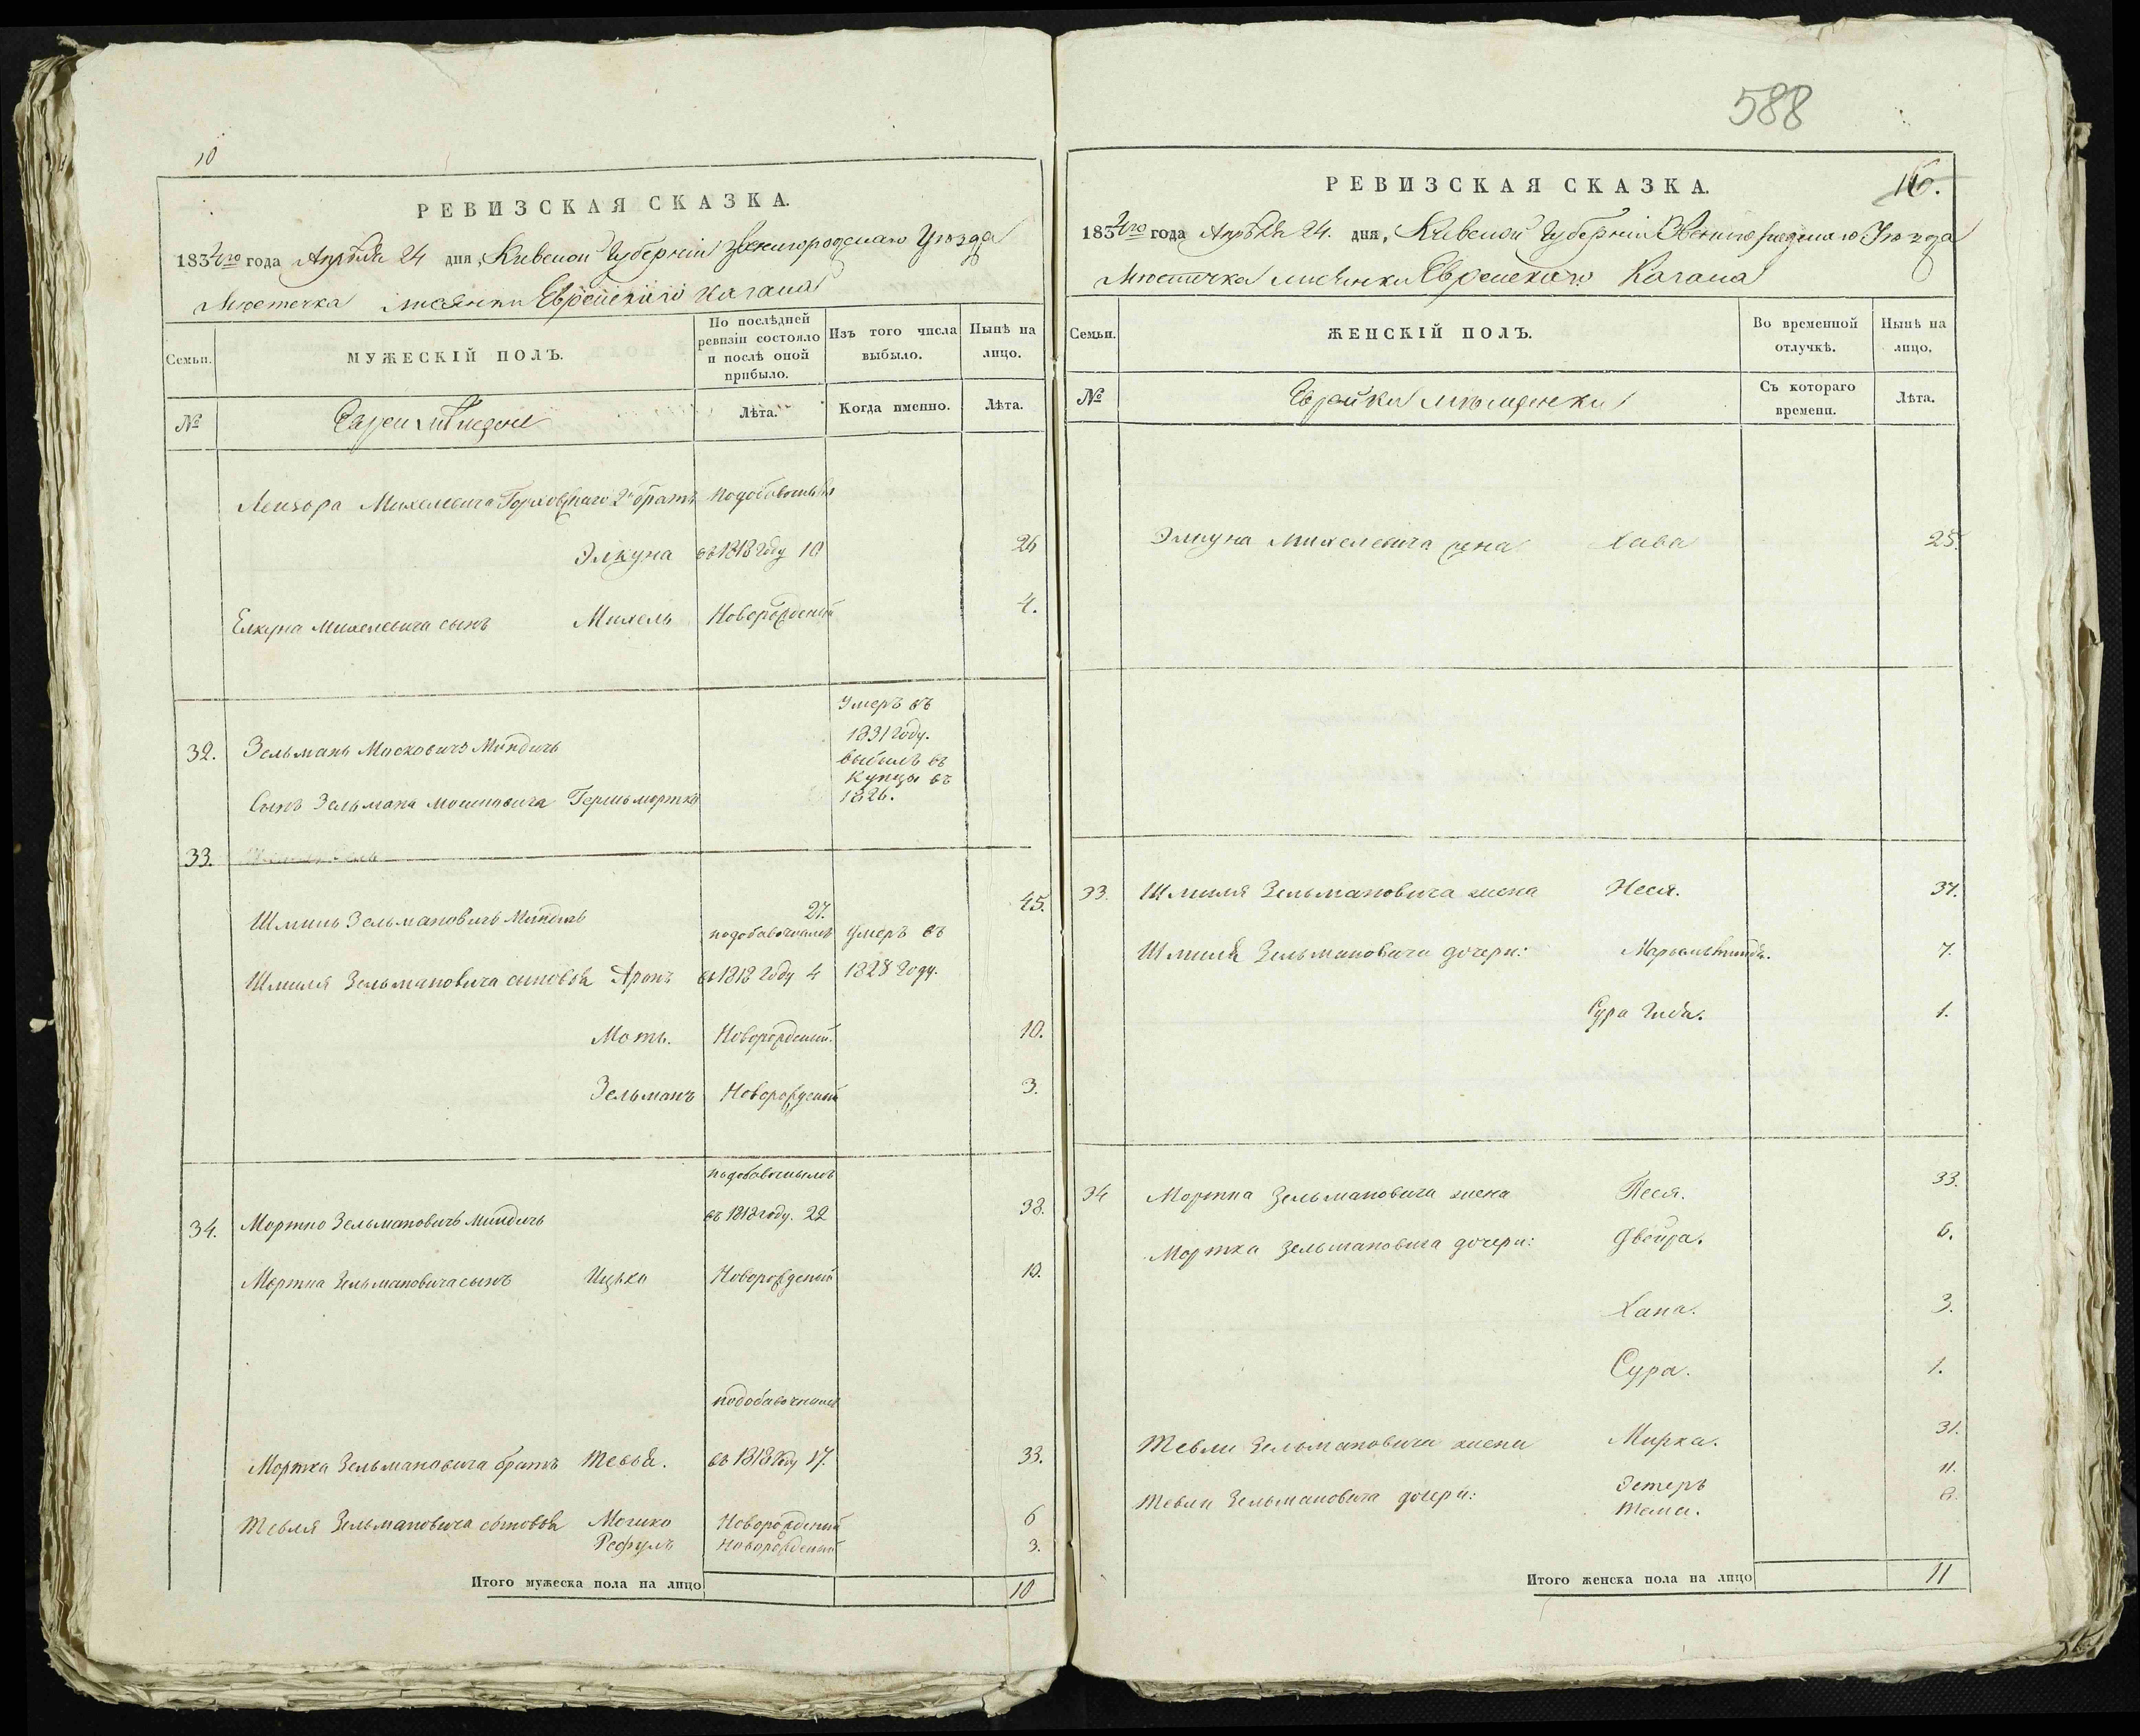 10
РЕВИЗСКАЯ СКАЗКА.
1834го года Апрѣля 24 дня, Киевской Губерніи Звенигородскаго Уѣзда
Мѣстечка Лисянки Еврейскаго Кагала
Семьи.
МУЖЕСКІЙ ПОЛЪ.
По послѣдней ревизіи состояло и послѣ оной прибыло.
Изъ того числа выбыло.
Нынѣ на лицо.
№
Евреи
Лѣта.
Когда именно.
Лѣта.
Лейзора Михелевича 2й братъ
Элкуна въ 1818 году 10 26
Елкуна Михелевича сынъ Михель Новорожденый 4.
32. Зельманъ Мошковичъ Миндичъ Умеръ въ 1831 году.
Сынъ Зельмана Мошковича Гершъ мортко выбылъ въ купцы въ 1826.
33.
Шмиль Зельмановичъ Миндичъ 27. 45.
Шмиля Зельмановича сыновья Аронъ подобавочнымъ въ 1818 году 4 умеръ въ 1828 году.
Моть. Новорожденый. 10.
Зельманъ Новорожденый 3.
34. Мортко Зельмановичъ Миндичъ подобавочнымъ въ 1818 году. 22 38.
Мортка Зельмановича сынъ Ицько Новорожденый 10.
Мортка Зельмановича братъ Тевья. подобавочнымъ въ 1818 году 17. 33.
Тевля Зельмановича сыновья Мошко Новорожденый 6
Рефулъ Новорожденый 3.
Итого мужеска пола на лицо 10
588
РЕВИЗСКАЯ СКАЗКА.
1834го года Апрѣля 24. дня, Киевской Губерніи Звенигородскаго Уѣзда
Мѣстечка Лисянки Еврейскаго Кагала
Семьи.
ЖЕНСКІЙ ПОЛЪ.
Во временной отлучкѣ.
Нынѣ на лицо.
№
Еврейки мѣщанки
Съ котораго времени.
Лѣта.
Элкуна Михелевича жена Хава 25.
33. Шмиля Зельмановича жена Неся. 37.
Шмиля Зельмановича дочери: 7.
Сура 1.
34 Мортка Зельмановича жена Песя. 33.
Мортка Зельмановича дочери: Двойра. 6.
Хана. 3.
Сура. 1.
Тевли Зельмановича жена Мирка. 31.
Тевли Зельмановича дочери: Эстеръ 11.
Тема.
Итого женска пола на лицо 11